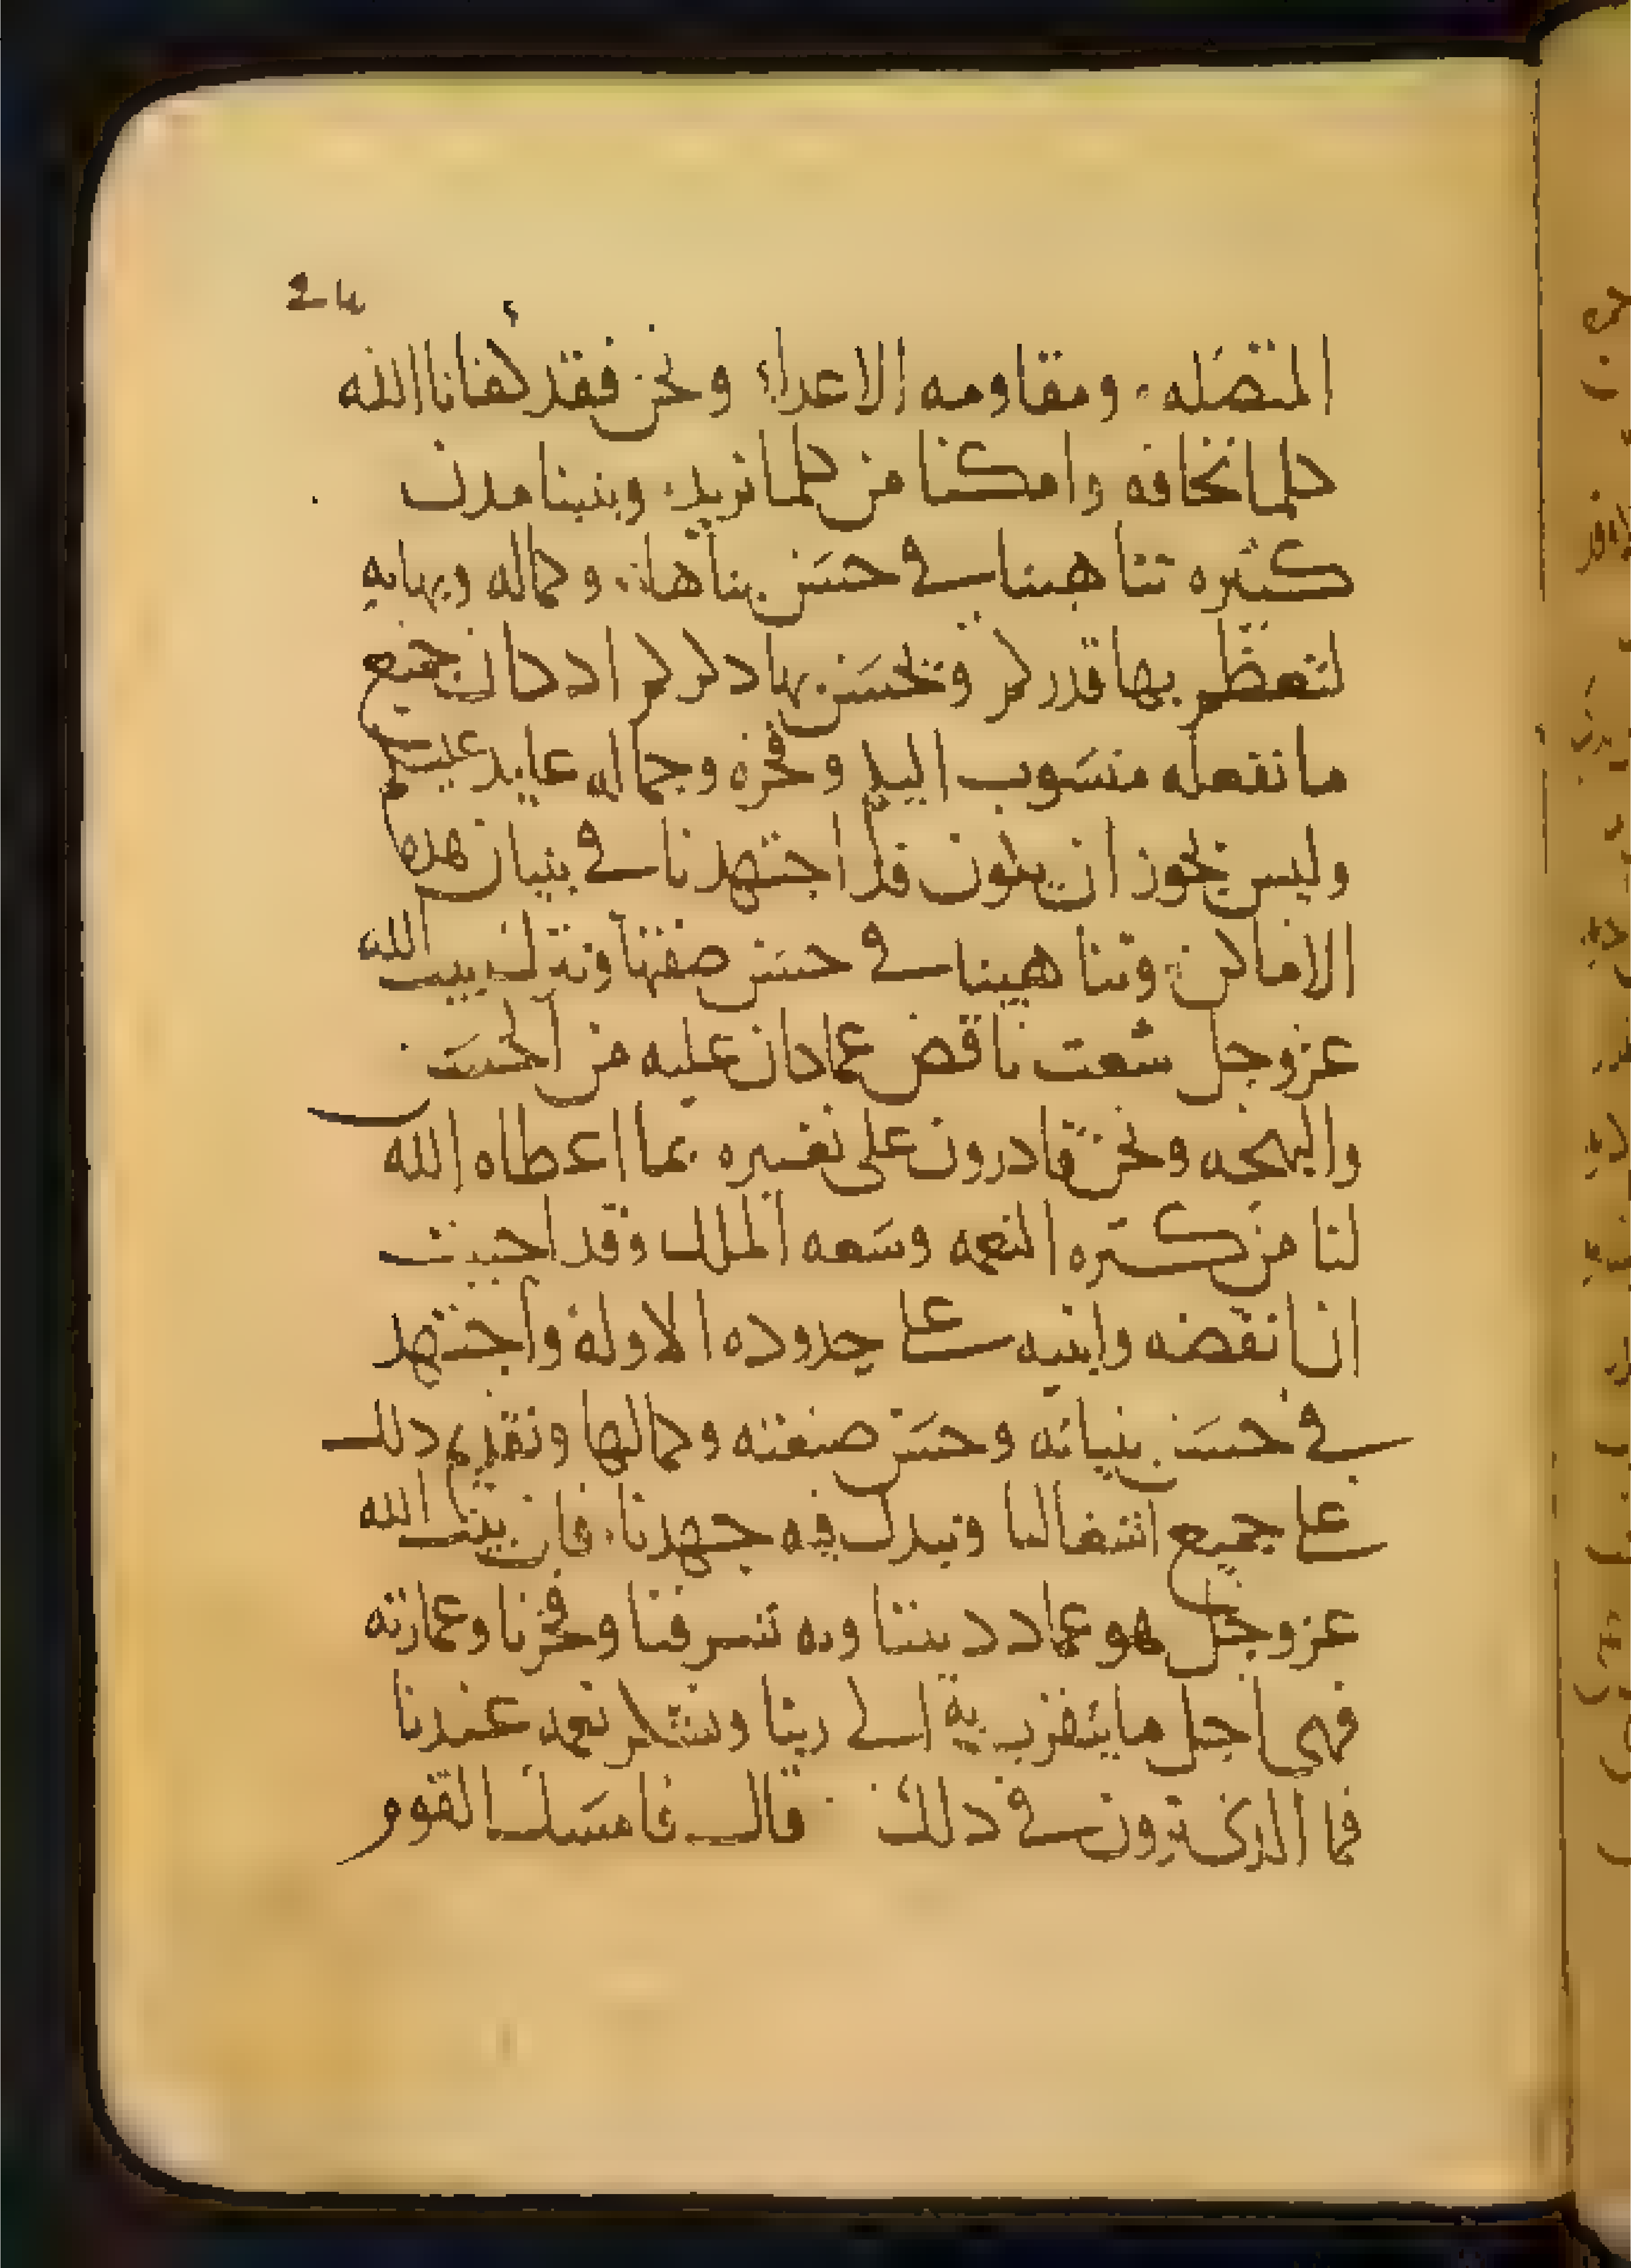 24
المتصله ومقاومه الاعداء ونحن فقد كفانا الله
كلما نخافه وامكنا من كلما نريد وبنينا مدن
كثيره تناهينا في حسن بناها وكماله وبهايه
لتعظم بها قدركم وتحسن بها دكركم اد كان جميع
ما نفعله منسوب اليكم وفخره وجماله عايد عليكم
وليس يجوز ان يكون قد اجتهدنا في بنيان هده
الاماكن وتناهينا في حسن صفتها ونترك بيت الله
عز وجل شعت ناقض عما كان عليه من الحسن
والبهجه ونحن قادرون على تغييره بما اعطاه الله
لنا من كتره النعمه وسعه الملك وقد احببت
ان انقضه وابنيه على حدوده الاوله واجتهد
في حسن بنيانه وحسن صنعته وكمالها ونقدم دلك
على جميع اشغالنا ونبدل فيه جهدنا فان بيت الله
عز وجل هو عماد ديننا وبه تشرفنا وفخرنا وعمارته
فهي اجل ما يتقرب به الى ربنا ونشكر نعمه عندنا
فما الدي ترون في دلك قال فامسك القوم